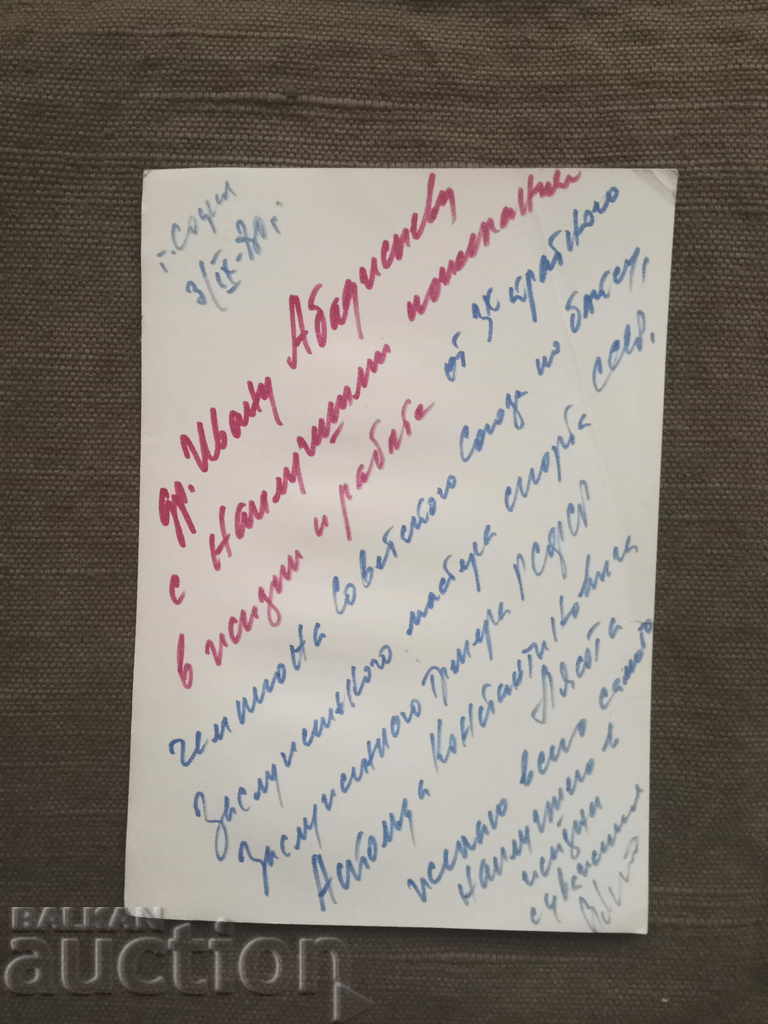 г. София
3/IX-80 г.
др. Ивану Абаджиеву
с наилучшими пожеланиями
в жизни и работе от 3х кратного
чемпиона Советского Союза по боксу,
Заслуженного мастера спорта СССР.
Заслуженного тренера РСФСР
Константиновича
Лясота
желаю всего самого
наилучшего в
жизни
с уважением
BALKAN
auction